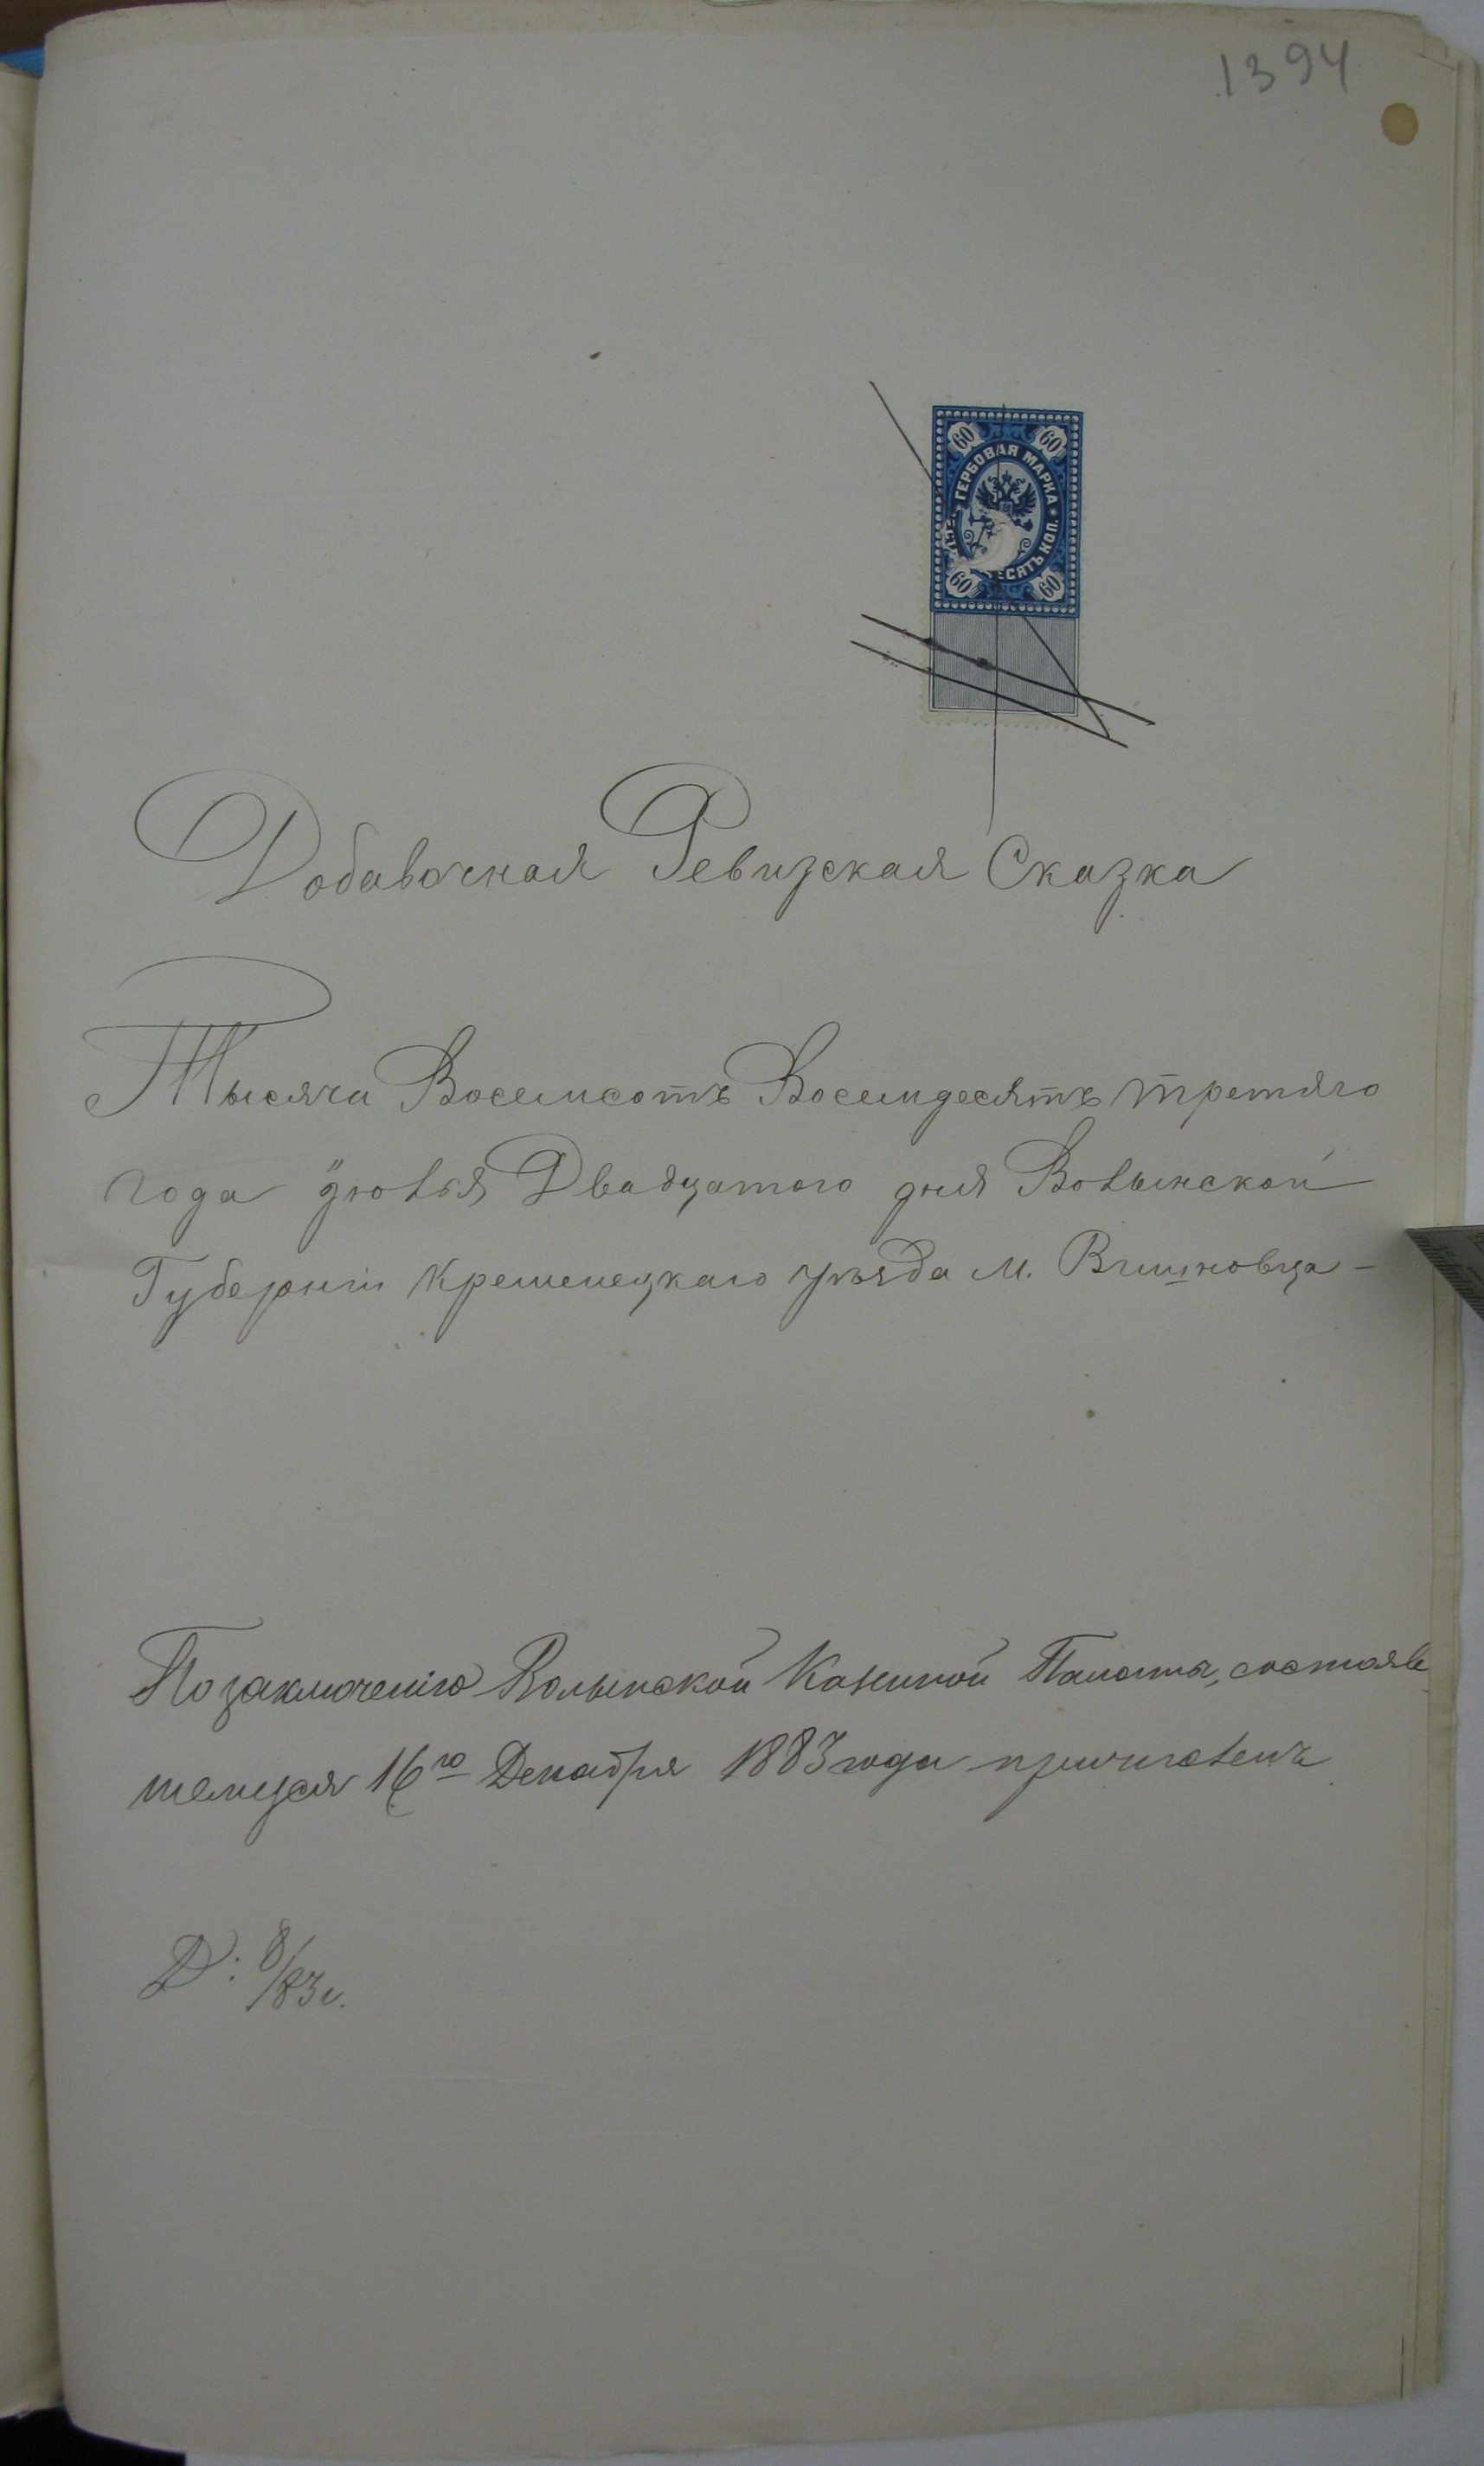 1394
60 60
ГЕРБОВАЯ МАРКА
ДЕСЯТЬ КОП.
60 60
Добавочная Ревизская Сказка
Тысяча Восемсотъ Восемдесятъ третяго
года Іюля Двадцатого дня Волынской
Губерніи Кременецкаго уѣзда м. Вишновца -
По заключенію Волынской Казенной Палаты, состояв
шемуся 16го Декабря 1883 года причисленъ
Д: 8/83 г.